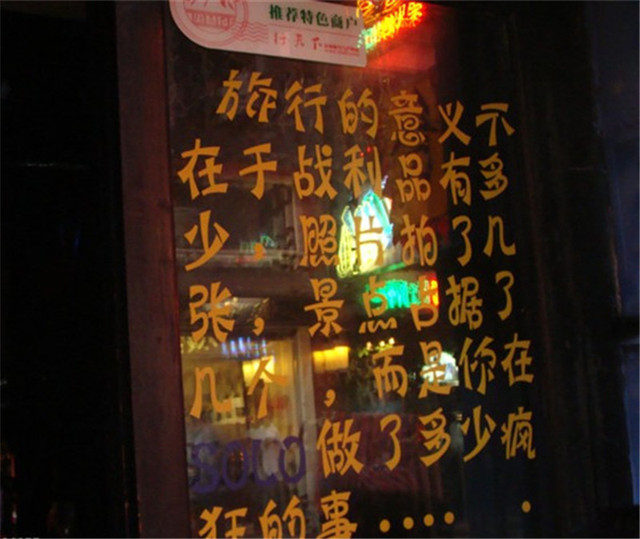 推荐特色商户
行天下
旅行的意义不
在于战利品有多
少，照片拍了几
张，景点占据了
几个，而是你在
SOLO做了多少疯
狂的事·····